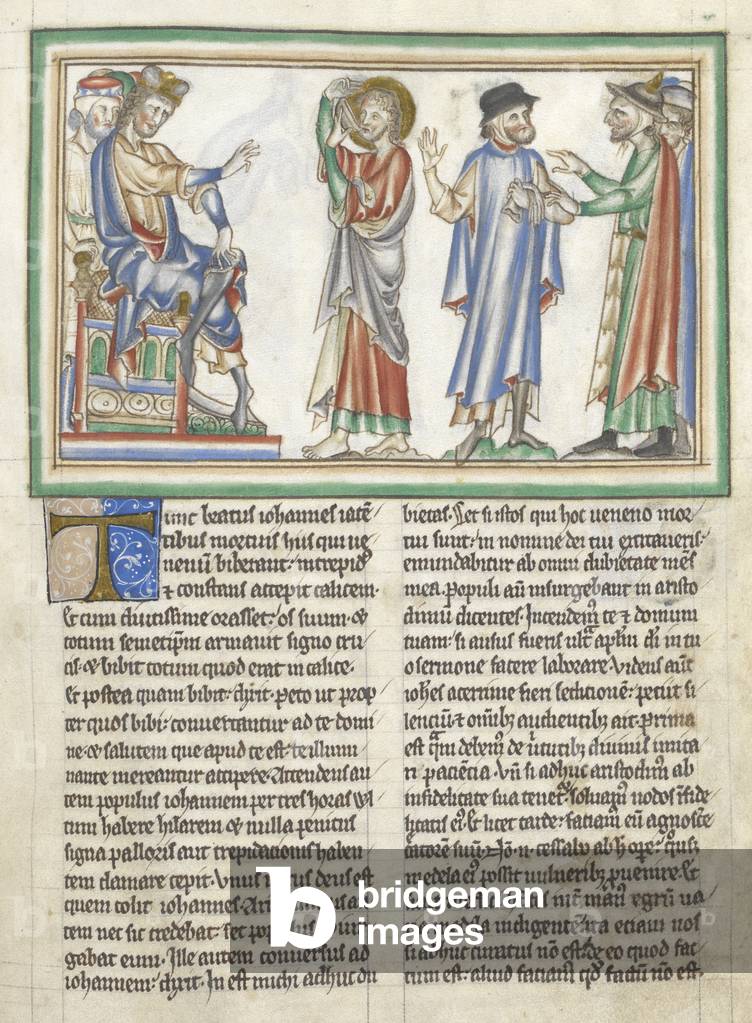 Tunc beatus iohannes iacē
tibus mortuis hiis qui ue
nenū biberant: intrepidꝰ
⁊ constans accepit calicem.
Et cum diutissime orasset: os suum ⁊
totum semetip̄m armauit signo cru
cis ⁊ bibit totum quod erat in calice.
Et postea quam bibit: dixit. peto ut prop
ter quos bibi: conuertantur ad te domi
ne ⁊ salutem que apud te est: te illumi
nante mereantur accipere. Attendens au
tem populus iohannem per tres horas uul
tum habere hilarem ⁊ nulla penitus
signa palloris aut trepidationis haben
tem clamare cepit. Vnus uerus deus est
quem colit iohannes. Aris au
tem nec sic credebat: set
gabat eum. Ille autem conuersus ad
iohannem: dixit. Inest michi adhuc du
bietas. Set si istos qui hoc ueneno mor
tui sunt: in nomine dei tui excitaueris:
emundabitur ab omni dubietate mens
mea. Populi aū insurgebant in aristo
dimū dicentes. Incendemꝰ te ⁊ domum
tuam: si ausus fueris ult̄ apl̄m di in tu
o sermone facere laborare. Videns aūt
ioh̄es acerrime fieri seditionē: petiit si
lenciū ⁊ om̄ibꝫ audientibꝫ ait. Prima
est qm̄ debemꝰ de uirtutibꝫ diuinis imita
ri paciēcia. Vn̄ si adhuc aristodimꝰ ab
infidelitate sua tenetꝰ: soluamꝰ nodos ifide
litatis eiꝰ. Et licet tarde: faciam eū agnosce
catorē suū. Iō n̄ cessabo ab h̄ opere:
medela eiꝰ possit uulneribꝫ puenire. Et
nꝰ egrū ua
indigentē: ita etiam nos
si adhuc curatus nō est: de eo quod fac
tum est: aliud faciamꝰ qd̄ factū nō est.
b bridgeman
images